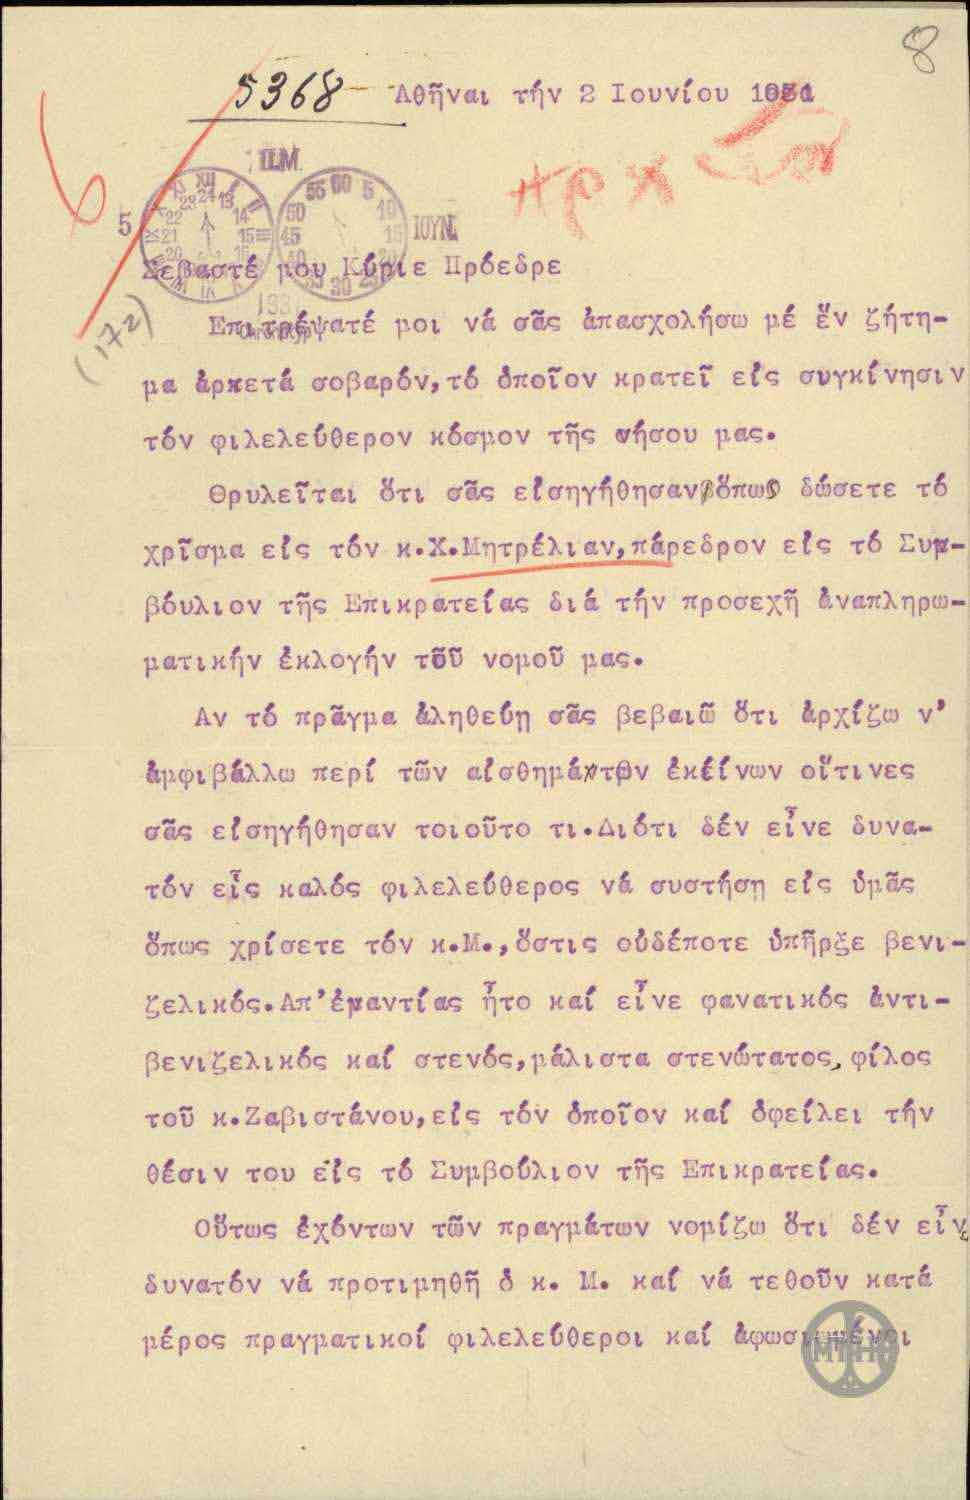 8
5368 Ἀθῆναι τήν 2 Ιουνίου 1931
6
Π.Μ.
5 ΙΟΥΝ.
Σεβαστέ μου Κύριε Πρόεδρε
(172)
Επιτρέψατέ μοι νά σᾶς ἀπασχολήσω μέ ἕν ζήτη-
μα ἀρκετά σοβαρόν,τό ὁποῖον κρατεῖ εἰς συγκίνησιν
τόν φιλελεύθερον κόσμον τῆς νήσου μας.
Θρυλεῖται ὅτι σᾶς εἰσηγήθησαν ὅπως δώσετε τό
χρῖσμα εἰς τόν κ.Χ.Μητρέλιαν,πάρεδρον εἰς τό Συμ-
βούλιον τῆς Επικρατείας διά τήν προσεχῆ ἀναπληρω-
ματικήν ἐκλογήν τοῦ νομοῦ μας.
Αν τό πρᾶγμα ἀληθεύῃ σᾶς βεβαιῶ ὅτι ἀρχίζω ν'
ἀμφιβάλλω περί τῶν αἰσθημάτων ἐκείνων οἵτινες
σᾶς εἰσηγήθησαν τοιοῦτο τι.Διότι δέν εἶνε δυνα-
τόν εἷς καλός φιλελεύθερος νά συστήσῃ εἰς ὑμᾶς
ὅπως χρίσετε τόν κ.Μ.,ὅστις οὐδέποτε ὑπῆρξε βενι-
ζελικός.Απ'ἐναντίας ἦτο καί εἶνε φανατικός ἀντι-
βενιζελικός καί στενός,μάλιστα στενώτατος, φίλος
τοῦ κ.Ζαβιτσάνου,εἰς τόν ὁποῖον καί ὀφείλει τήν
θέσιν του εἰς τό Συμβούλιον τῆς Επικρατείας.
Οὕτως ἐχόντων τῶν πραγμάτων νομίζω ὅτι δέν εἶνε
δυνατόν νά προτιμηθῆ ὁ κ. Μ. καί νά τεθοῦν κατά
μέρος πραγματικοί φιλελεύθεροι καί ἀφωσιωμένοι